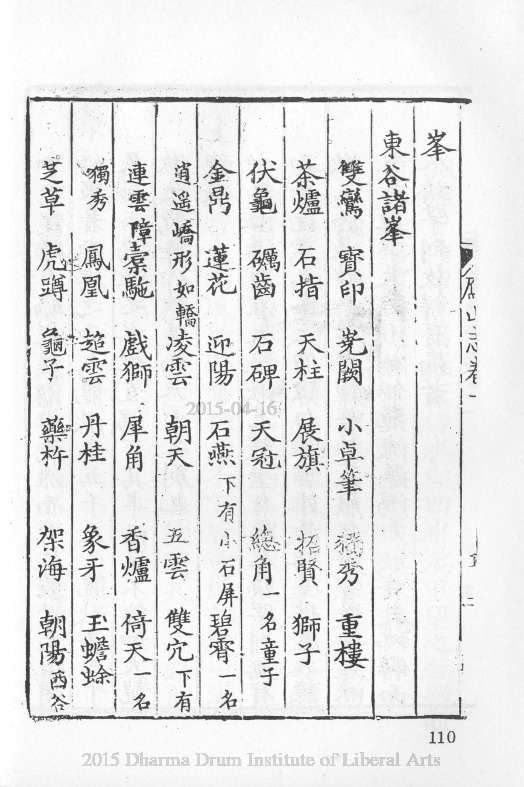 山志卷一
峯
東谷諸峯
雙鸞 寶印 小卓筆 獨秀 重樓
茶爐 石指 天柱 展旗 招賢 獅子
伏龜 礪齒 石碑 天冠 總角一名童子
金鼎 蓮花 迎陽 石燕下有小石屏碧霄一名
逍遥嶠形如轎凌雲 朝天 五雲 雙穴下有
連雲障 橐駞 戲獅 犀角 香爐 倚天一名
獨秀 鳳凰 超雲 丹桂 象牙 玉蟾蜍
芝草 虎蹲 龜子 藥杵 架海 朝陽西谷
2015-04-16
110
2015 Dharma Drum Institute of Liberal Arts